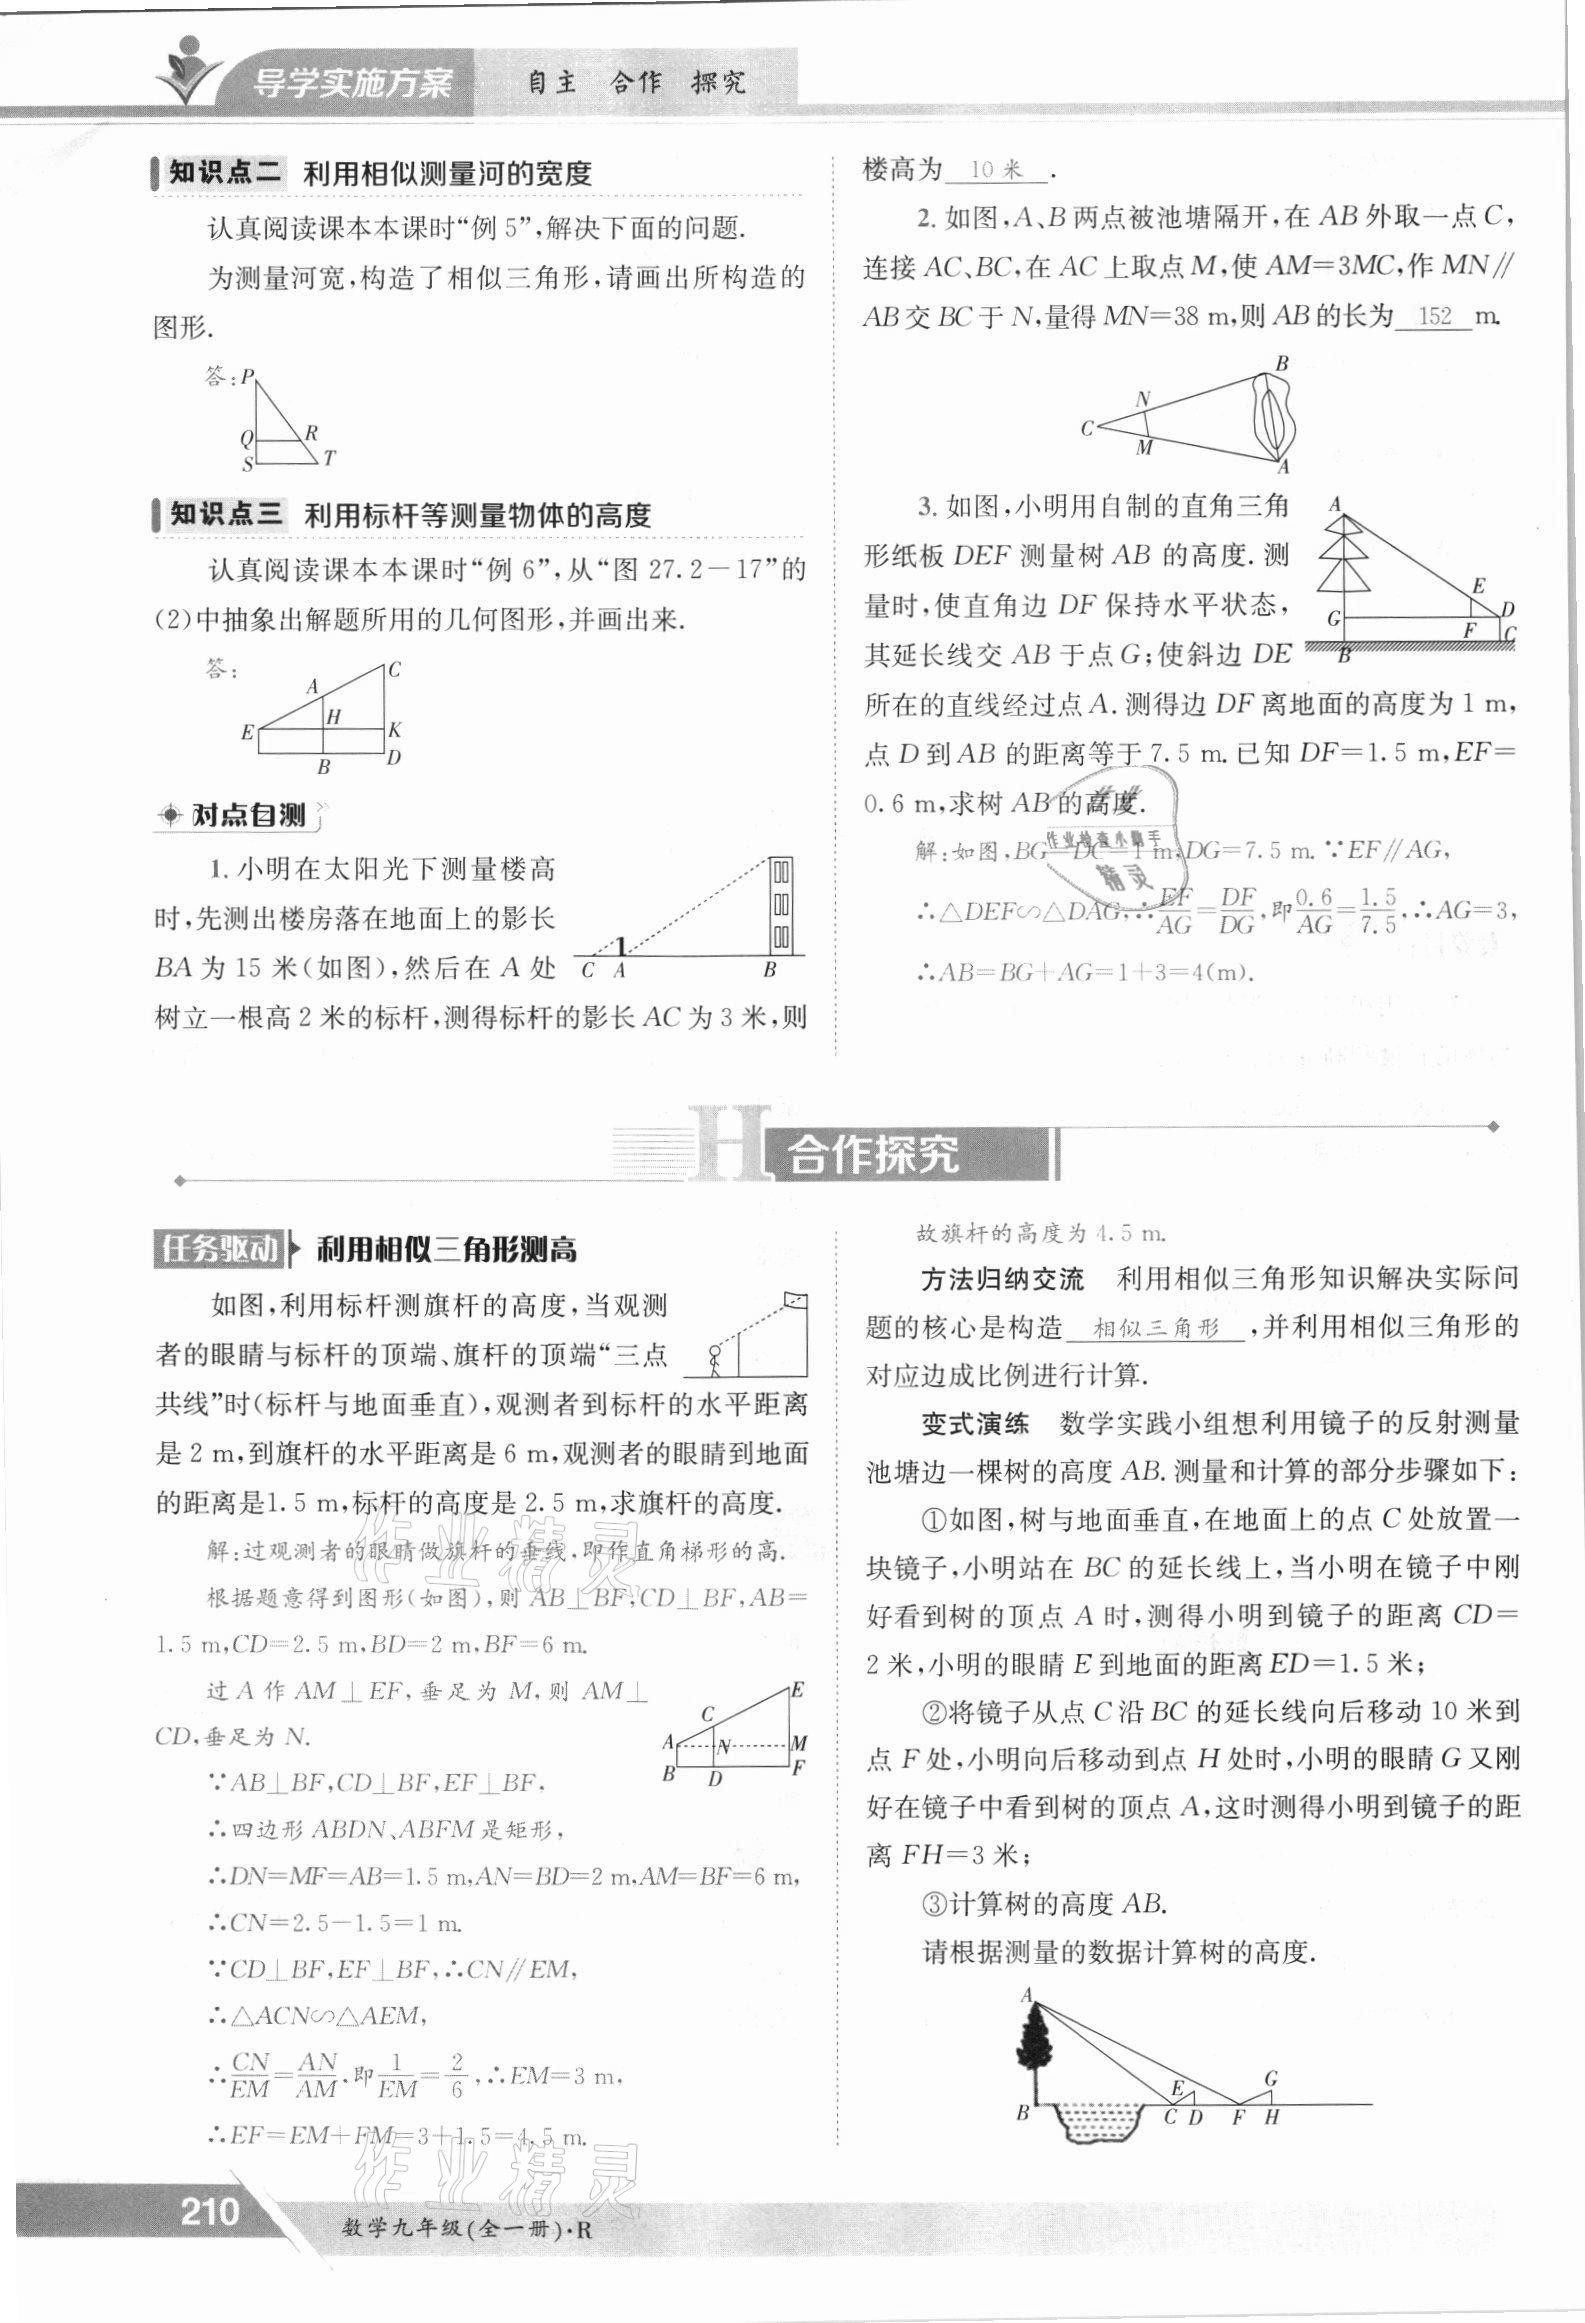 导学实施方案 自主 合作 探究
知识点二 利用相似测量河的宽度
认真阅读课本本课时“例 5”,解决下面的问题.
为测量河宽,构造了相似三角形,请画出所构造的
图形.
答:
P
Q R
S T
知识点三 利用标杆等测量物体的高度
认真阅读课本本课时“例 6”,从“图 27.2-17”的
(2)中抽象出解题所用的几何图形,并画出来.
答:
C
A
H
E K
B D
对点自测
1. 小明在太阳光下测量楼高
时,先测出楼房落在地面上的影长
BA 为 15 米(如图),然后在 A 处
C A B
树立一根高 2 米的标杆,测得标杆的影长 AC 为 3 米,则
楼高为 10 米 .
2. 如图,A、B 两点被池塘隔开,在 AB 外取一点 C,
连接 AC、BC,在 AC 上取点 M,使 AM=3MC,作 MN∥
AB 交 BC 于 N,量得 MN=38 m,则 AB 的长为 152 m.
B
N
C
M
A
3. 如图,小明用自制的直角三角
形纸板 DEF 测量树 AB 的高度. 测
量时,使直角边 DF 保持水平状态,
其延长线交 AB 于点 G;使斜边 DE
A
E
G F D
B C
所在的直线经过点 A. 测得边 DF 离地面的高度为 1 m,
点 D 到 AB 的距离等于 7.5 m. 已知 DF=1.5 m,EF=
0.6 m,求树 AB 的高度.
解:如图,BG=DC=1 m,DG=7.5 m. ∵EF∥AG,
∴△DEF∽△DAG,∴EF/AG=DF/DG,即0.6/AG=1.5/7.5,∴AG=3,
∴AB=BG+AG=1+3=4(m).
作业检查小帮手
精灵
H 合作探究
任务驱动 利用相似三角形测高
如图,利用标杆测旗杆的高度,当观测
者的眼睛与标杆的顶端、旗杆的顶端“三点
共线”时(标杆与地面垂直),观测者到标杆的水平距离
是 2 m,到旗杆的水平距离是 6 m,观测者的眼睛到地面
的距离是1.5 m,标杆的高度是 2.5 m,求旗杆的高度.
解:过观测者的眼睛做旗杆的垂线,即作直角梯形的高.
根据题意得到图形(如图),则 AB⊥BF,CD⊥BF,AB=
1.5 m,CD=2.5 m,BD=2 m,BF=6 m.
过 A 作 AM⊥EF,垂足为 M,则 AM⊥
CD,垂足为 N.
E
C
A N M
B D F
∵AB⊥BF,CD⊥BF,EF⊥BF,
∴四边形 ABDN、ABFM 是矩形,
∴DN=MF=AB=1.5 m,AN=BD=2 m,AM=BF=6 m,
∴CN=2.5-1.5=1 m.
∵CD⊥BF,EF⊥BF,∴CN∥EM,
∴△ACN∽△AEM,
∴CN/EM=AN/AM,即1/EM=2/6,∴EM=3 m,
∴EF=EM+FM=3+1.5=4.5 m.
故旗杆的高度为 4.5 m.
方法归纳交流 利用相似三角形知识解决实际问
题的核心是构造 相似三角形 ,并利用相似三角形的
对应边成比例进行计算.
变式演练 数学实践小组想利用镜子的反射测量
池塘边一棵树的高度 AB. 测量和计算的部分步骤如下:
①如图,树与地面垂直,在地面上的点 C 处放置一
块镜子,小明站在 BC 的延长线上,当小明在镜子中刚
好看到树的顶点 A 时,测得小明到镜子的距离 CD=
2 米,小明的眼睛 E 到地面的距离 ED=1.5 米;
②将镜子从点 C 沿 BC 的延长线向后移动 10 米到
点 F 处,小明向后移动到点 H 处时,小明的眼睛 G 又刚
好在镜子中看到树的顶点 A,这时测得小明到镜子的距
离 FH=3 米;
③计算树的高度 AB.
请根据测量的数据计算树的高度.
A
E G
B C D F H
作业精灵
作业精灵
210 数学九年级(全一册)·R